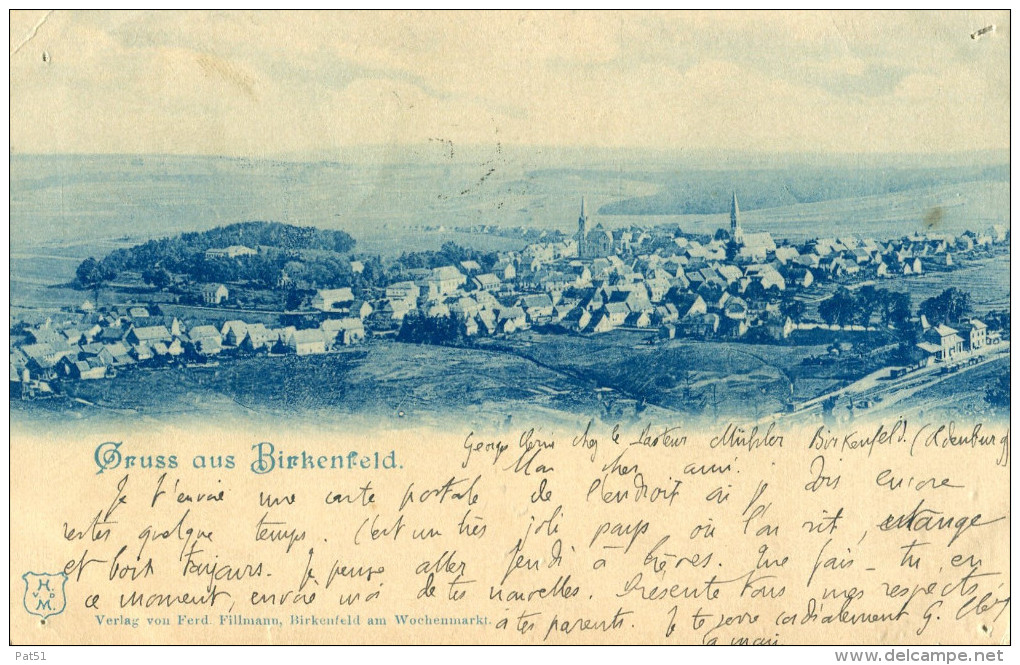 Gruss aus Birkenfeld.
Georges chez le Pasteur Müller Birkenfeld. (Oldenburg)
Mon cher ami.
Je t'envoie une carte postale de l'endroit où je dois encore
rester quelque temps. C'est un très joli pays où l'on rit, mange
et boit toujours. Je pense aller jeudi à Fais-tu, en
ce moment, envoie moi de tes nouvelles. Présente tous mes respects
à tes parents. Je te serre cordialement G.
la main
H.
v D
M.
Verlag von Ferd. Fillmann, Birkenfeld am Wochenmarkt.
Pat51
delcampe.net